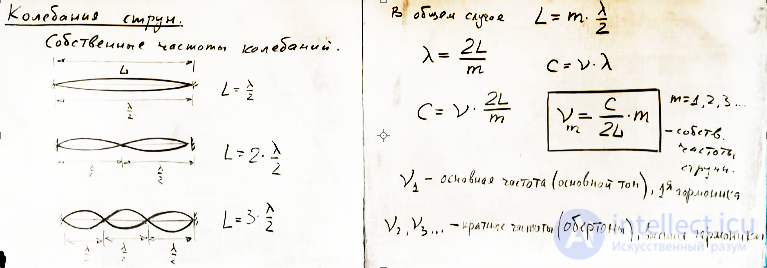 Колебания струн.
Собственные частоты колебаний.
L
λ/2
L = λ/2
λ/2
L = 2 · λ/2
λ/2 λ/2 λ/2
L = 3 · λ/2
В общем случае L = m · λ/2
λ = 2L/m C = ν · λ
C = ν · 2L/m
ν_m = C/2L · m
m = 1, 2, 3 ...
- собств.
частоты
струны.
ν₁ - основная частота (основной тон), 1я гармоника
ν₂, ν₃ ... - кратные частоты (обертоны), гармоники
intellect.icu
Искусственный разум